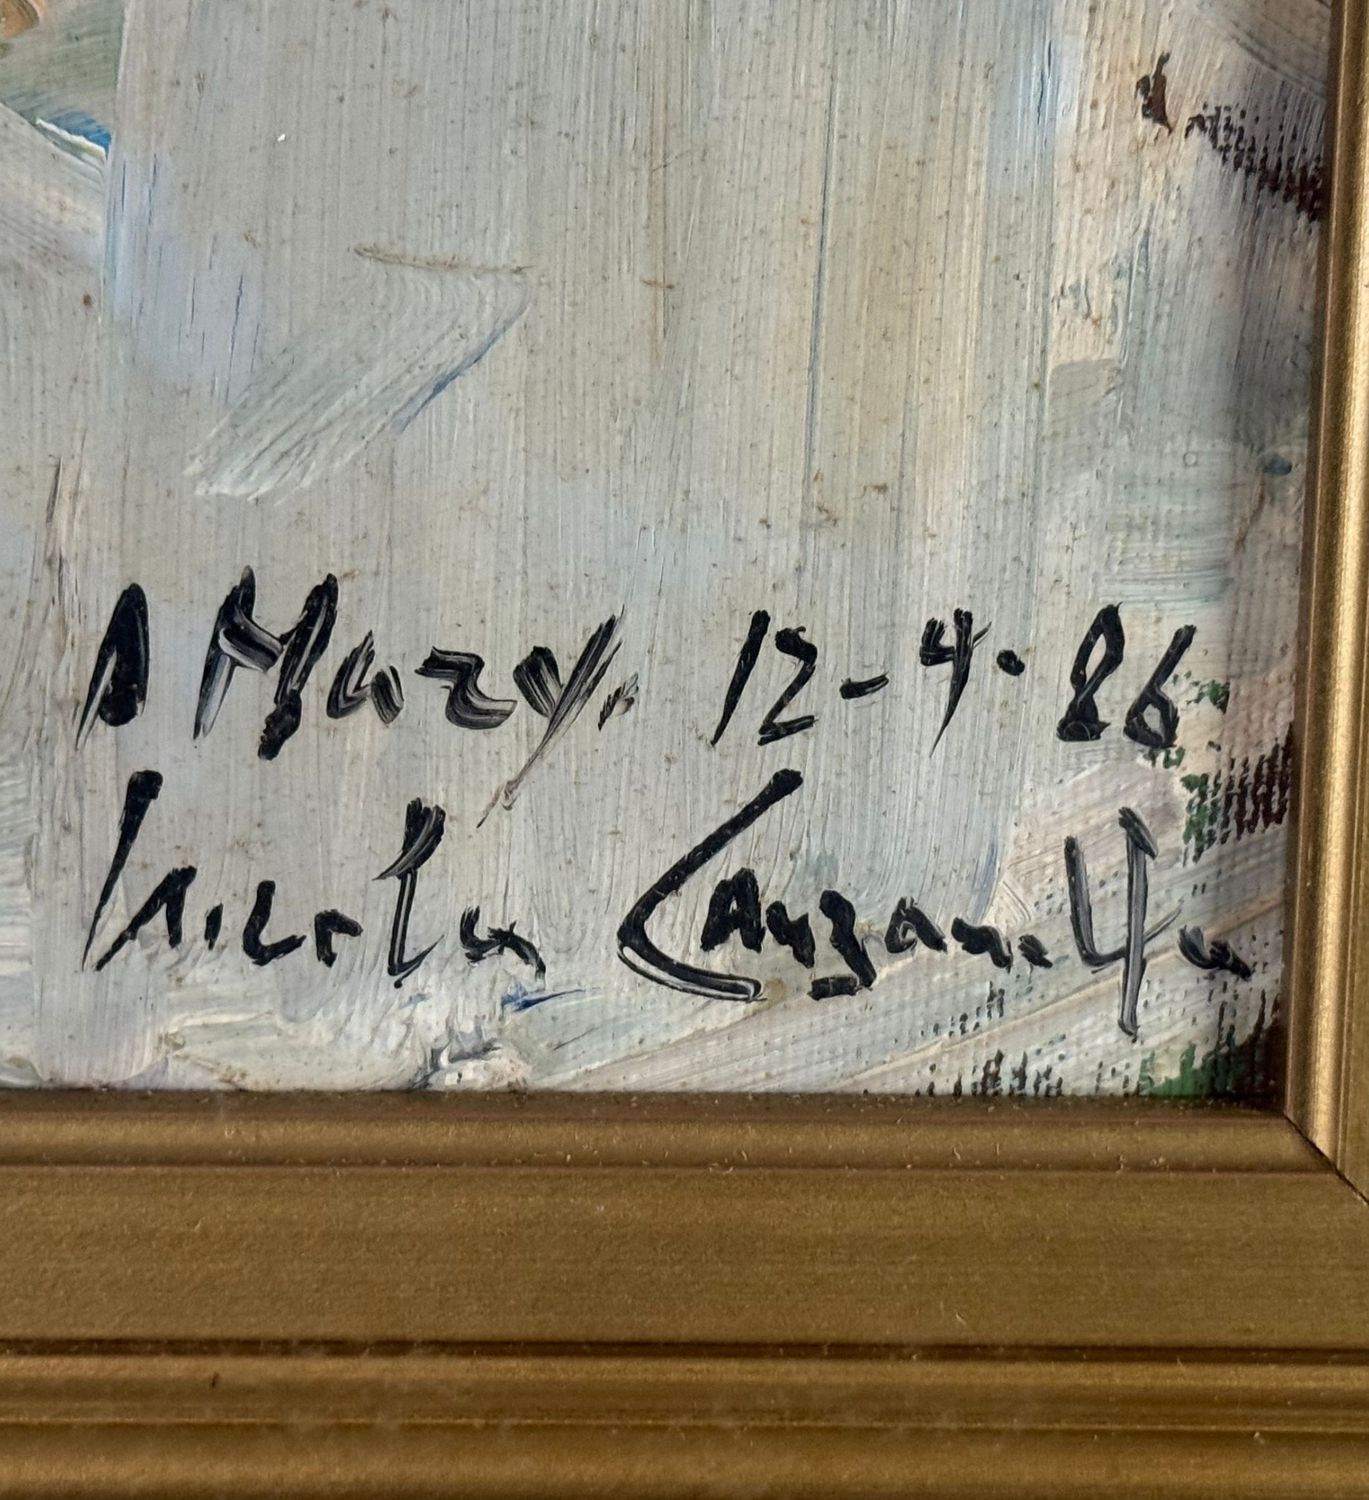 A Mary. 12-4.86
Nicola